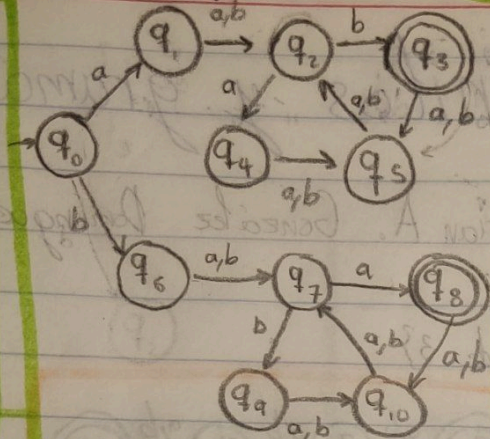 a,b
q1 q2 b q3
a
a a,b a,b
q0 q4 a,b q5
b
q6 a,b q7 a q8
b a,b a,b
q9 a,b q10